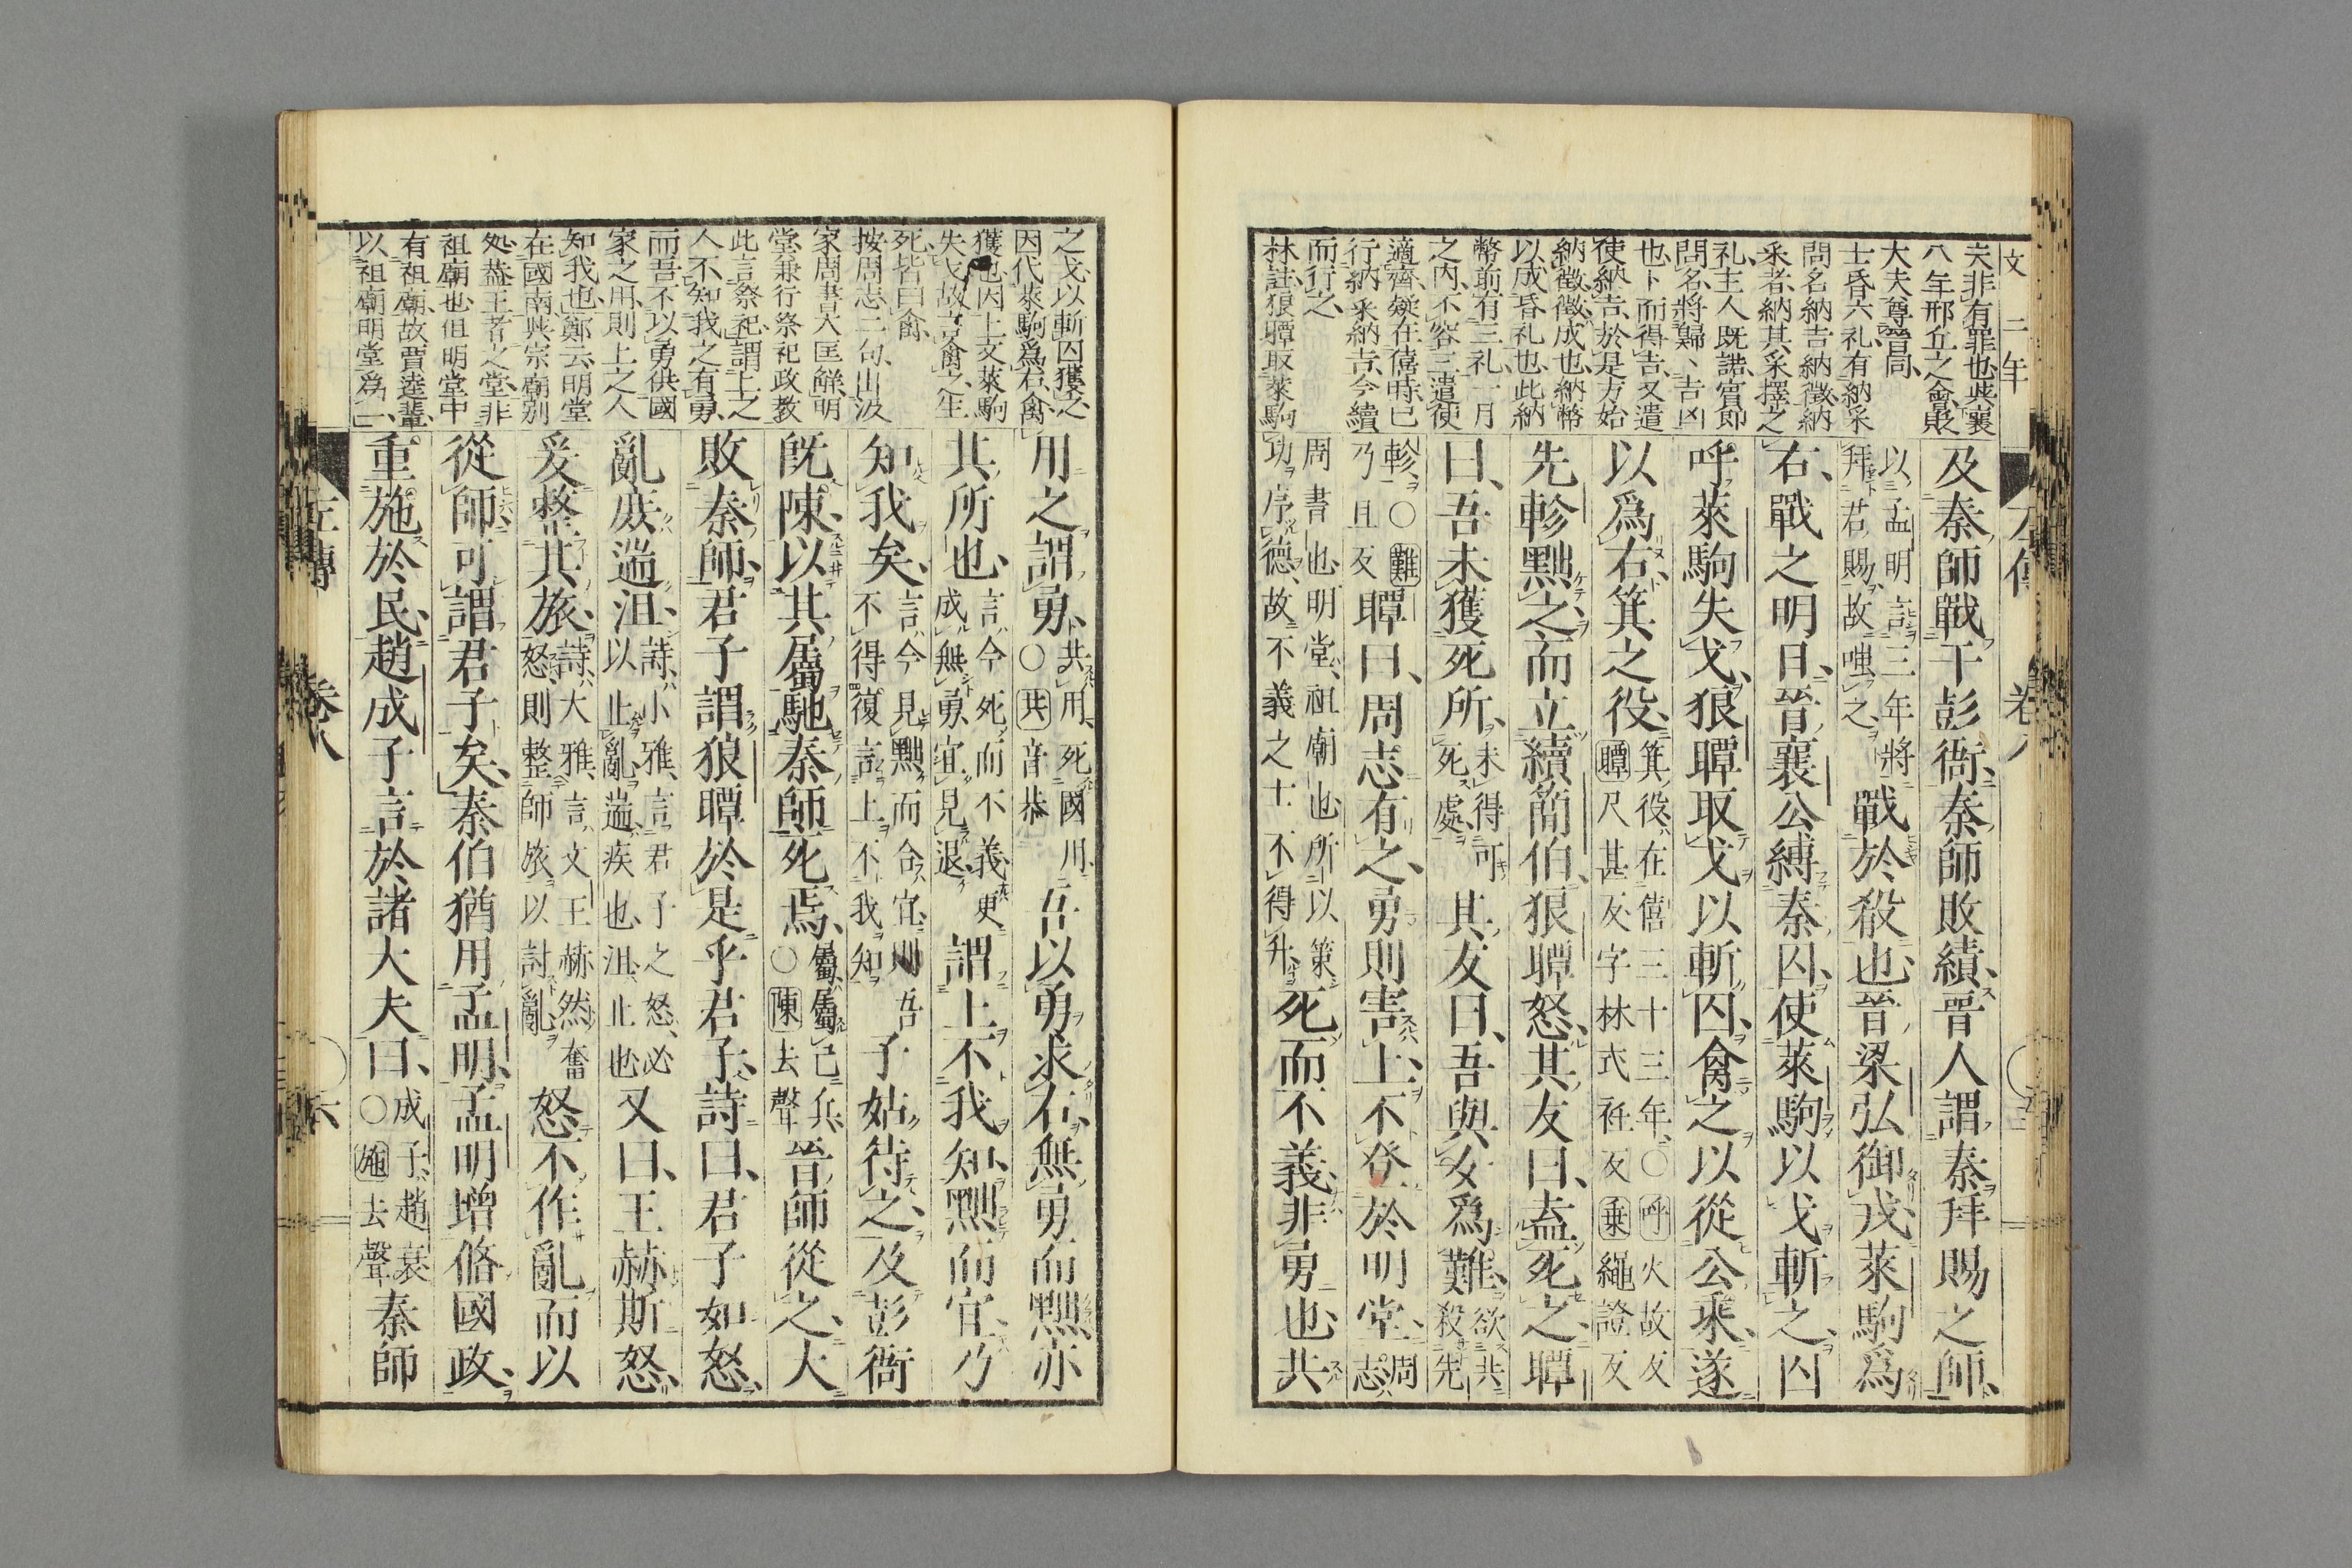 文 二年
夫非有罪也與襄
八年邢丘之會貶
大夫尊晉同
士昏六礼有納采
問名納吉納徵納
采者納其采擇之
礼主人既諾賓即
問名將歸卜吉凶
也卜而得吉又遣
使納吉於是方始
納徵徵成也納幣
以成昏礼也此納
幣前有三礼一月
之内不容三遣使
適齊疑在僖時已
行納采納吉今續
而行之
林註狼瞫取萊駒
及秦師戰于彭衙秦師敗績晉人謂秦拜賜之師
以孟明言三年將拜君賜故嗤之戰於殽也晉梁弘御戎萊駒爲
右戰之明日晉襄公縛秦囚使萊駒以戈斬之囚
呼萊駒失戈狼瞫取戈以斬囚禽之以從公乘遂
以爲右箕之役箕役在僖三十三年○呼火故反瞫尺甚反字林式衽反乘繩證反
先軫黜之而立續簡伯狼瞫怒其友曰盍死之瞫
曰吾未獲死所未得可死處其友曰吾與女爲難欲共殺先
軫○難乃且反瞫曰周志有之勇則害上不登於明堂周志
周書也明堂祖廟也所以策功序德故不義之士不得升死而不義非勇也共
之戈以斬囚獲之
因代萊駒爲右禽
獲也因上文萊駒
失戈故言禽之生
死皆曰禽
按周志二句出汲
家周書大匡觧明
堂兼行祭祀政教
此言祭祀謂上之
人不知我之有勇
而吾不以勇供國
家之用則上之人
知我也鄭云明堂
在國南與宗廟别
処蓋王者之堂非
祖廟也但明堂中
有祖廟故賈逵輩
以祖廟明堂爲一
用之謂勇共用死國用○共音恭吾以勇求右無勇而黜亦
其所也言今死而不義更成無勇宜見退謂上不我知黜而宜乃
知我矣言今見黜而合宜則吾不得復言上不我知子姑待之及彭衙
既陳以其屬馳秦師死焉屬屬己兵○陳去聲晉師從之大
敗秦師君子謂狼瞫於是乎君子詩曰君子如怒
亂庶遄沮詩小雅言君子之怒必以止亂遄疾也沮止也又曰王赫斯怒
爰整其旅詩大雅言文王赫然奮怒則整師旅以討亂怒不作亂而以
從師可謂君子矣秦伯猶用孟明孟明增脩國政
重施於民趙成子言於諸大夫曰成子趙衰○施去聲秦師
左傳 卷八 六